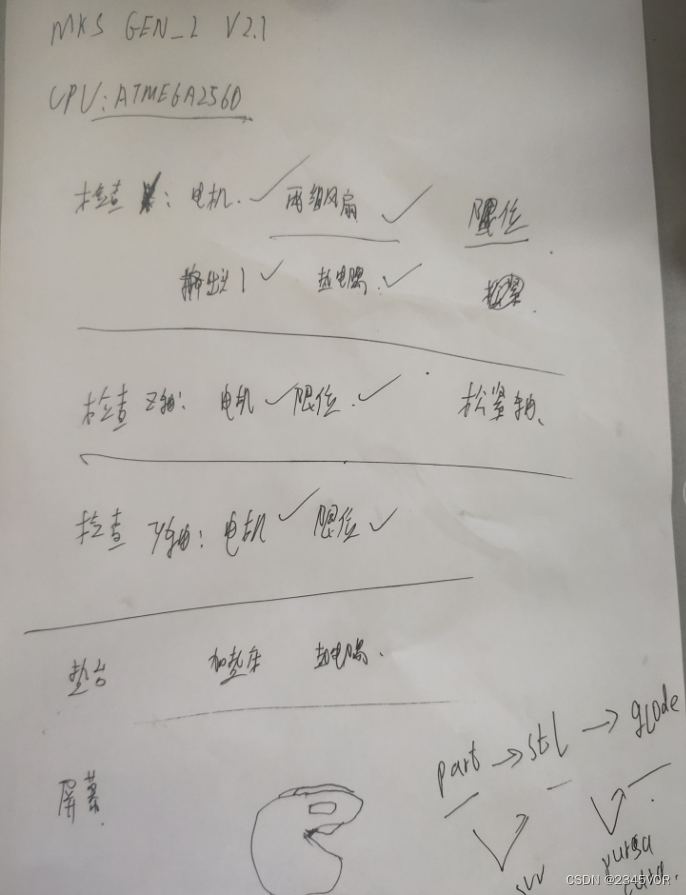 MKS GEN_L V2.1
CPU: ATMEGA2560
检查 : 电机. ✓ 两组风扇 ✓ 限位
挤出头 ✓ 热电偶. ✓
检查 Z轴: 电机 ✓ 限位. ✓ 松紧轴、
检查 Y轴: 电机 ✓ 限位 ✓
热台 加热床 热电偶.
屏幕
part → stl → gcode
CSDN @2345VOR